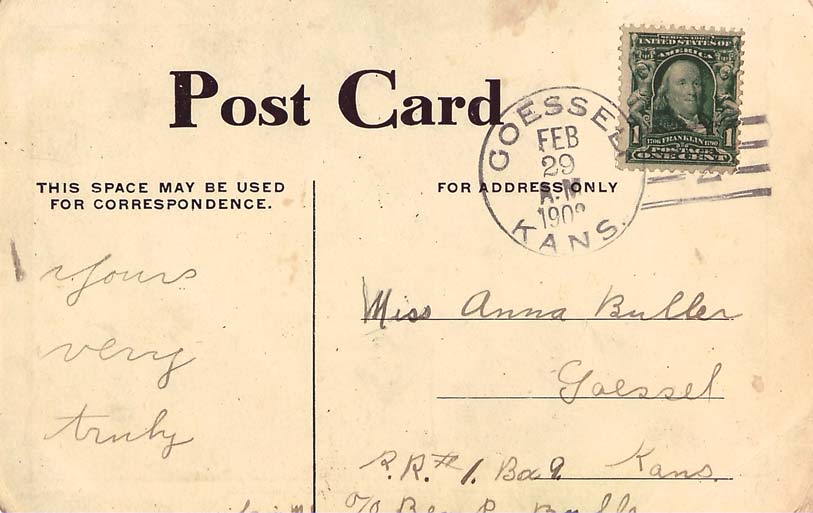 Post Card
THIS SPACE MAY BE USED
FOR CORRESPONDENCE.
FOR ADDRESS ONLY
GOESSEL
FEB
29
A.M.
KANS.
UNITED STATES OF
AMERICA
1
1
1706 FRANKLIN 1790
POSTAGE
ONE CENT
Yours
very
truly
Miss Anna Buller
Goessel
R.R.#1. Box 9. Kans.
c/o Ben